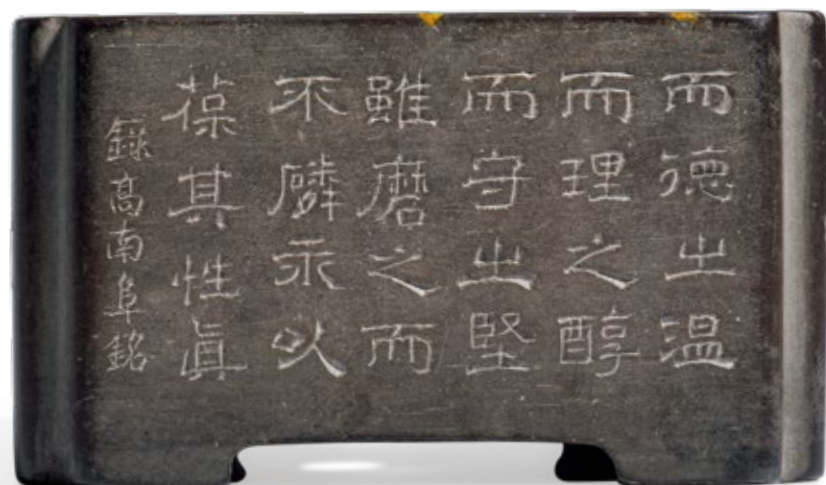 而德㞢温
而理之醇
而守㞢堅
雖磨之而
不磷永以
葆其性眞
錄高南阜銘